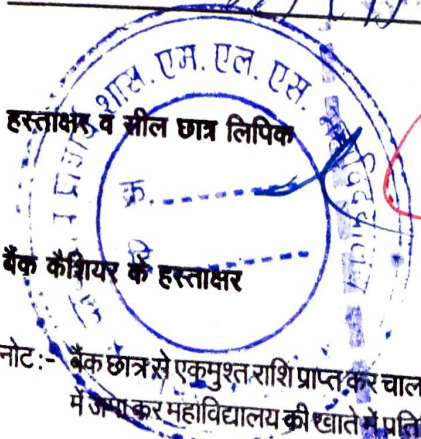 शास. एम. एल. एस.
हस्ताक्षर व सील छात्र लिपिक
क्र.
बैंक कैशियर के हस्ताक्षर
नोट :- बैंक छात्र से एकमुश्त राशि प्राप्त कर चाल
में जमा कर महाविद्यालय की खाते में प्रति